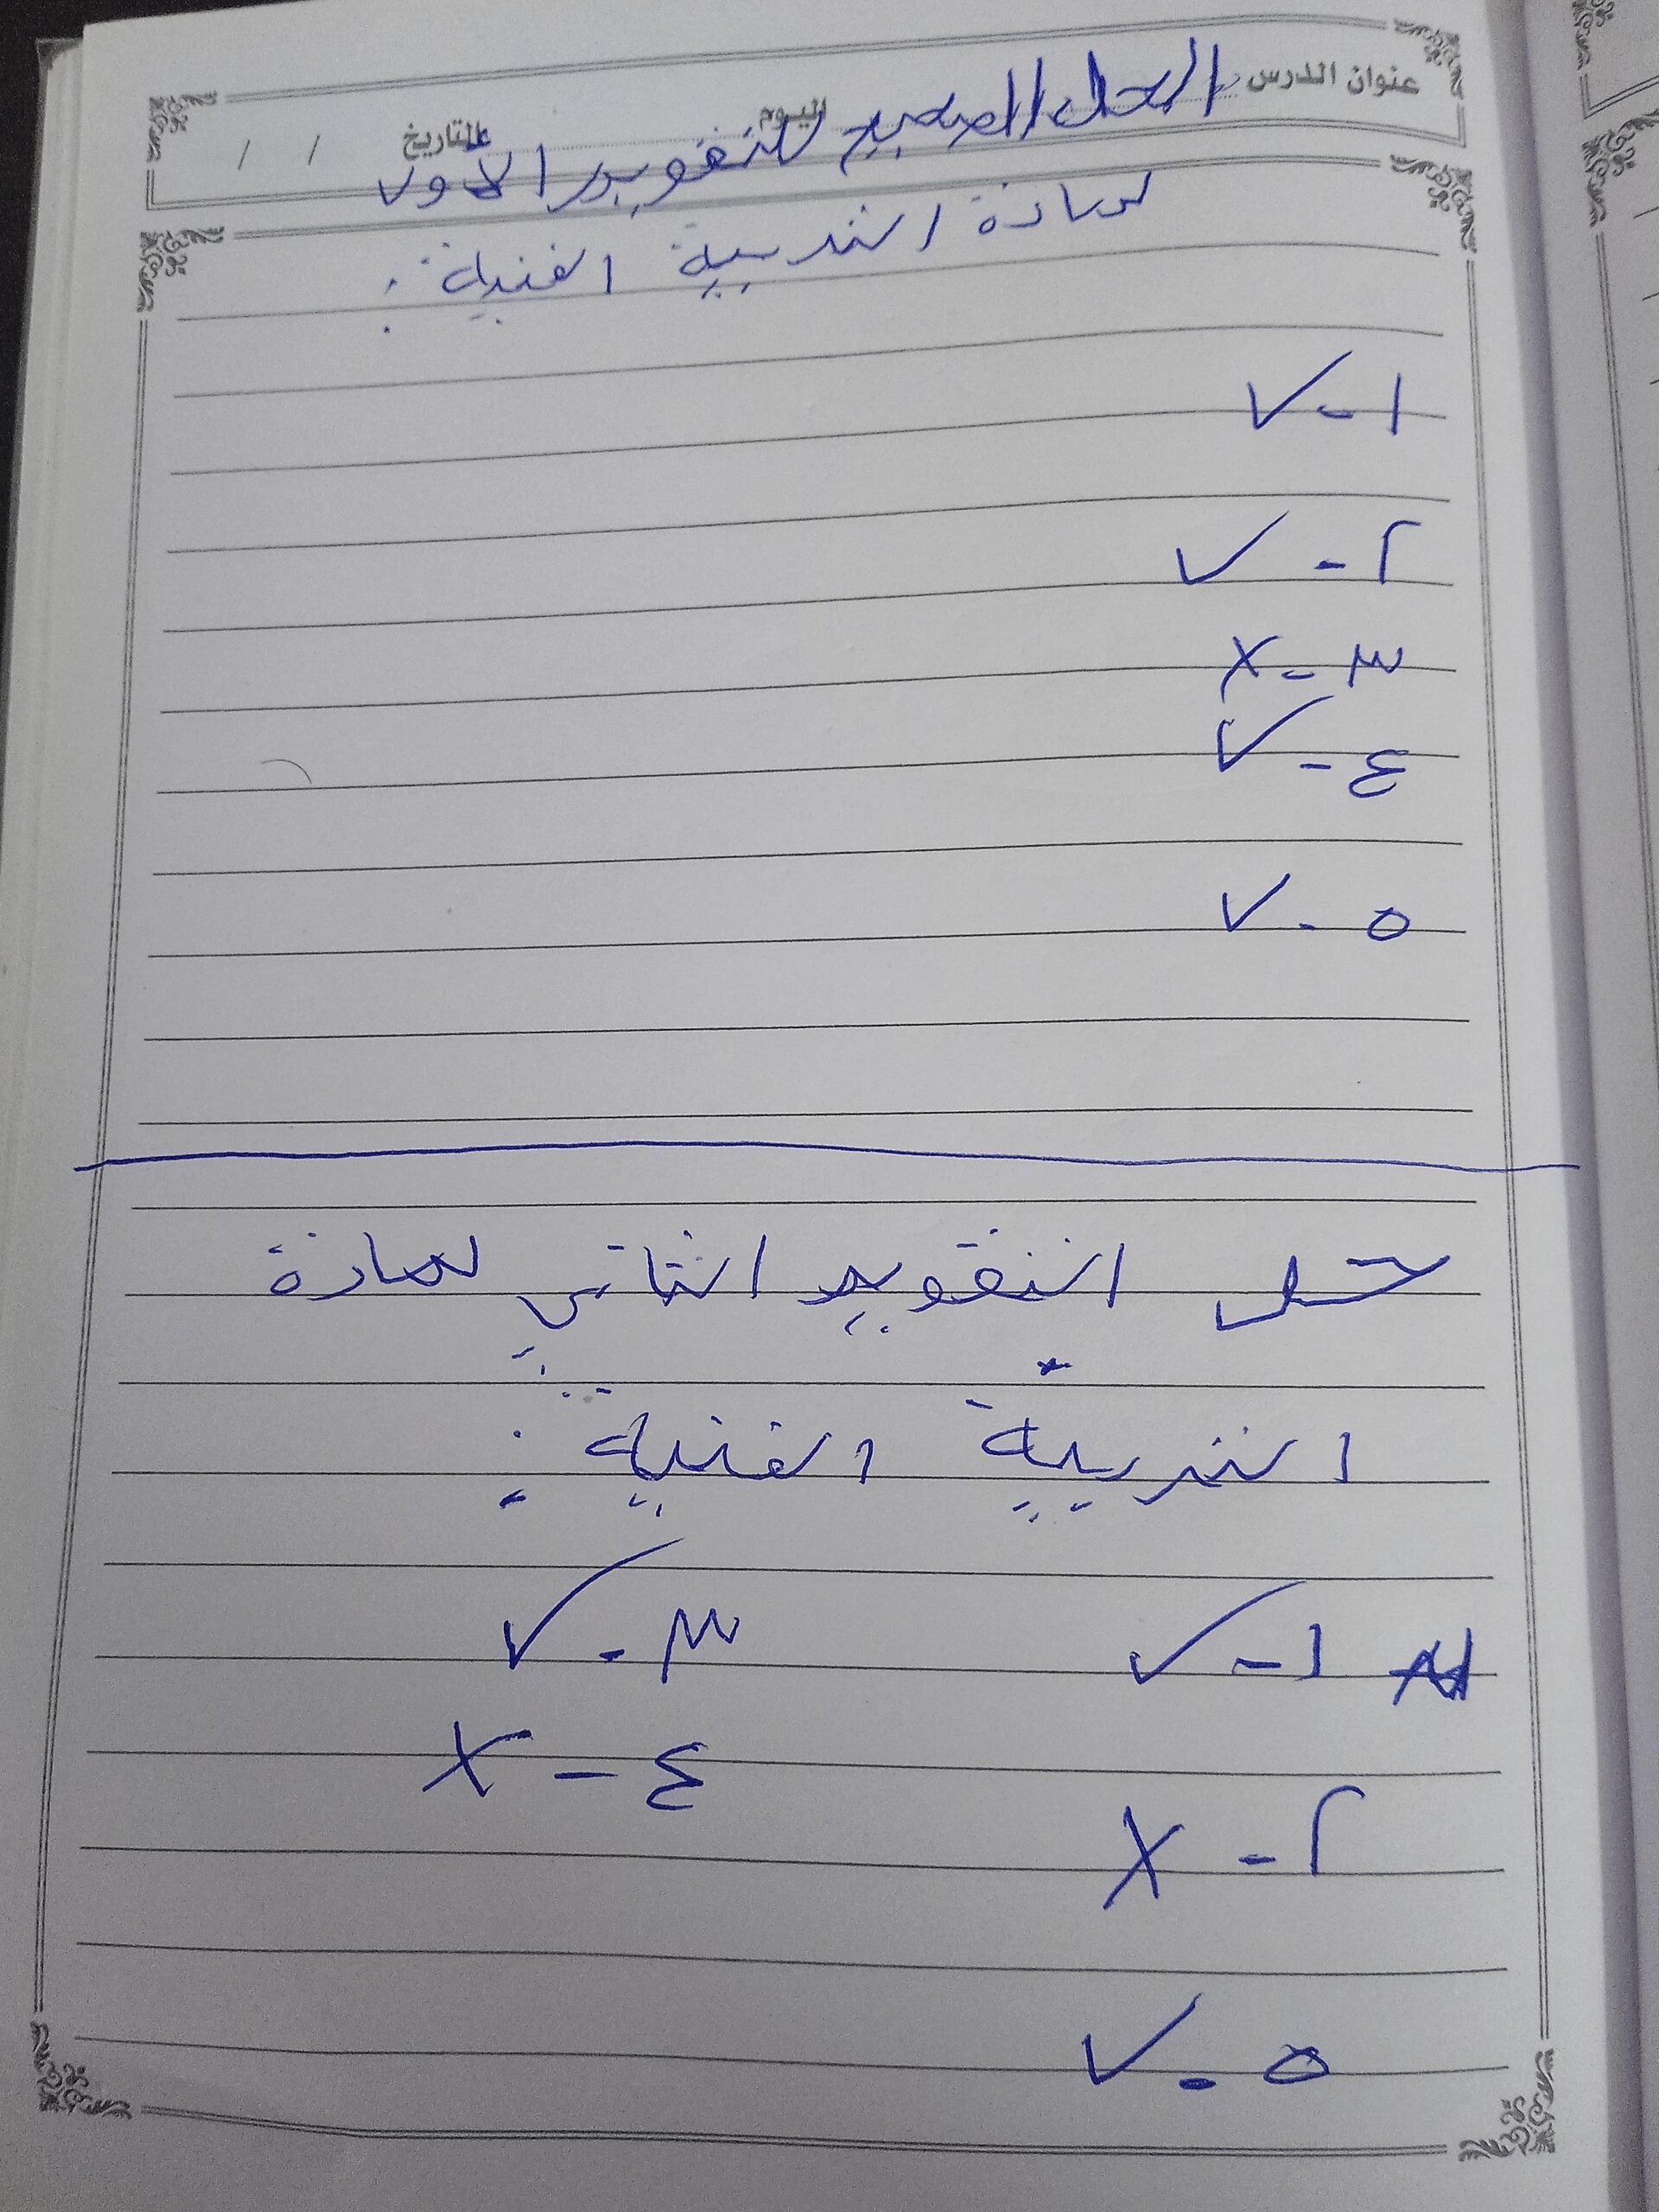 عنوان الدرس اليوم التاريخ / /
الحل الصحيح للتقويم الأول
لمادة التربية الفنية :
١ - ✓
٢ - ✓
٣ - X
٤ - ✓
٥ - ✓
حل التقويم الثاني لمادة
التربية الفنية :
١ - ✓ ٣ - ✓
٤ - X
٢ - X
٥ - ✓